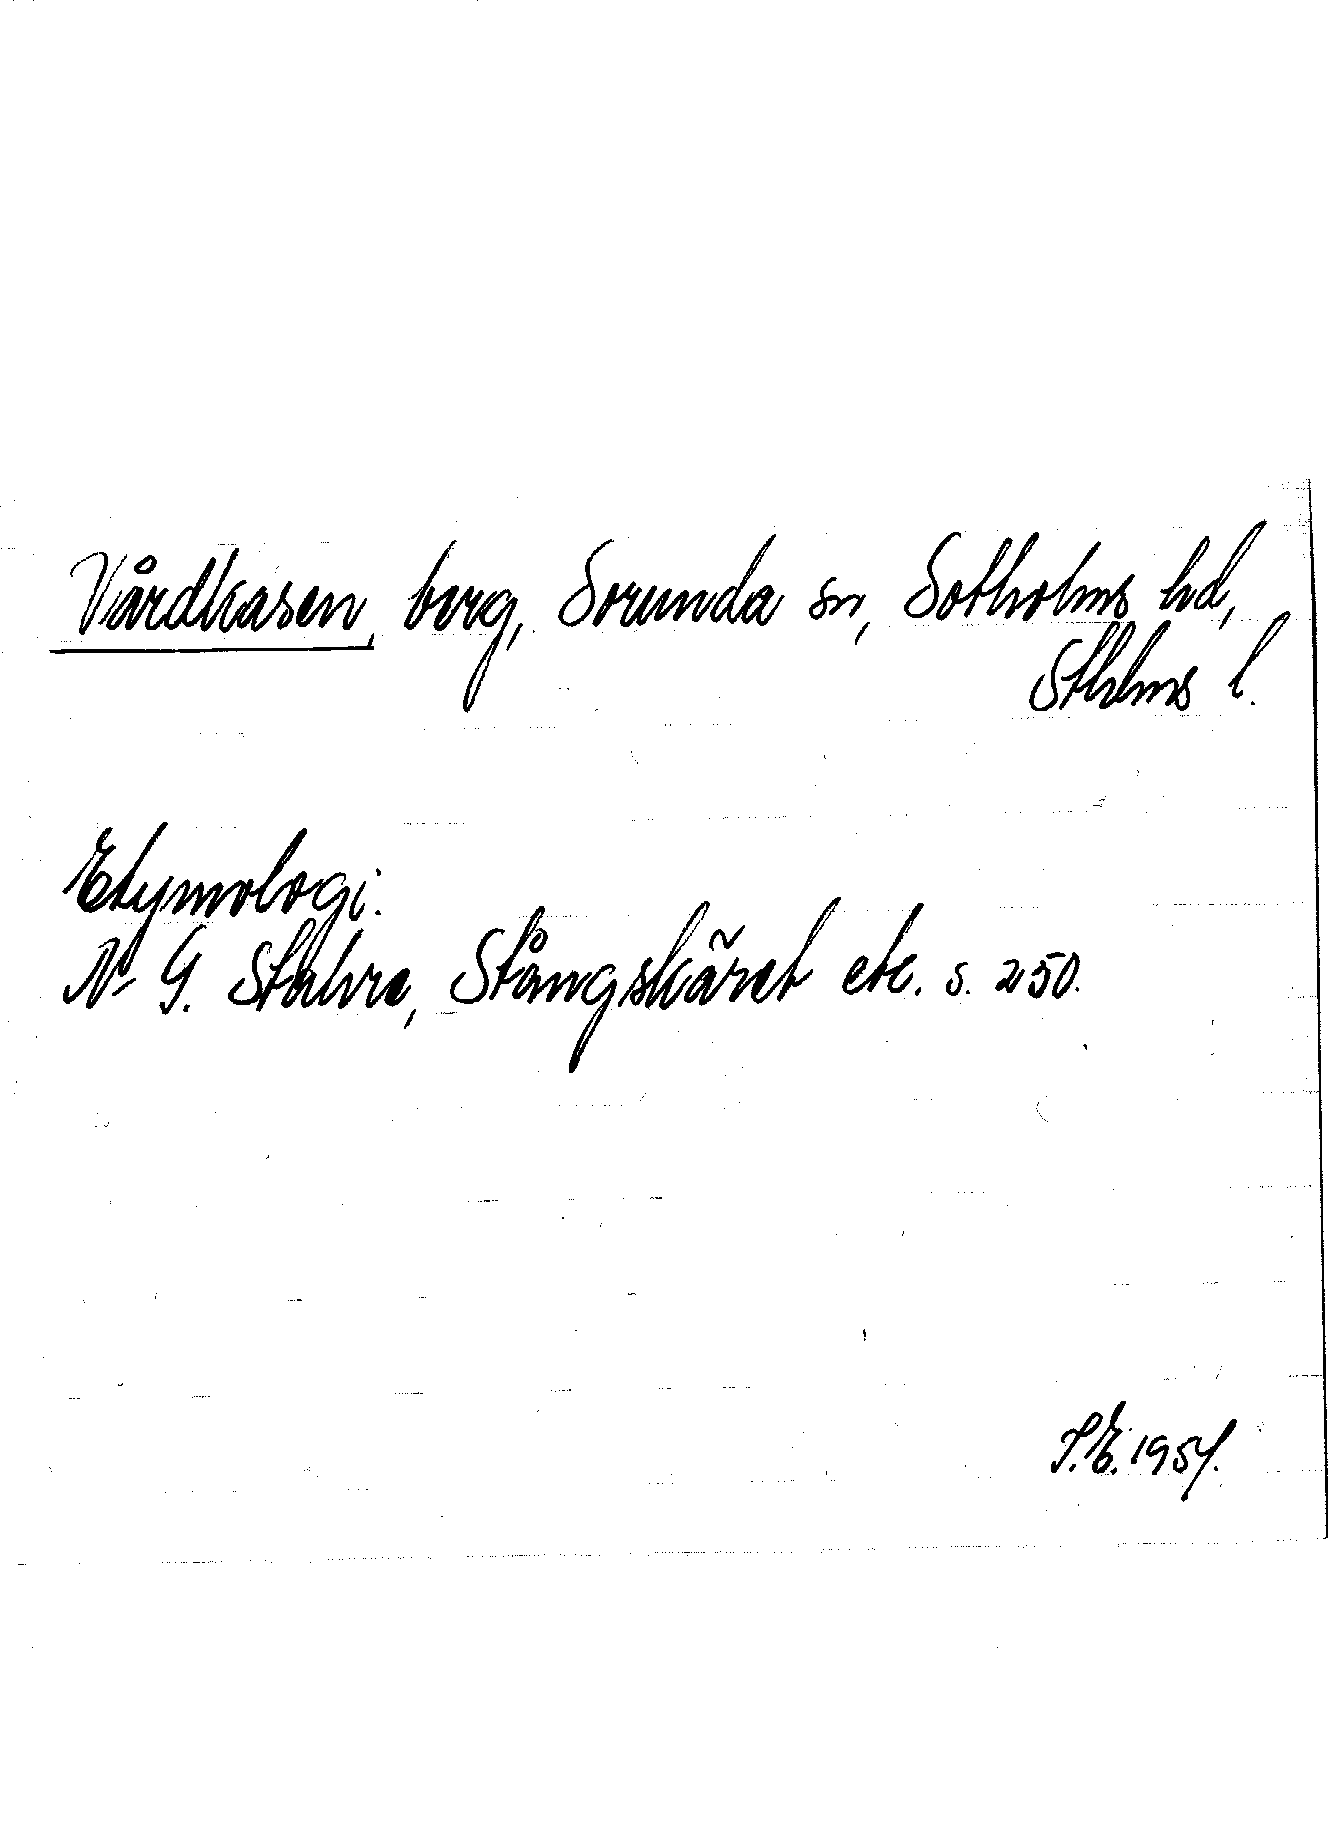 Vårdkasen, berg, Sorunda sn, Sotholms hd,
Sthlms l.
Etymologi:
N-G. Stahre, Stångskäret etc. s. 250.
S.E. 1957.